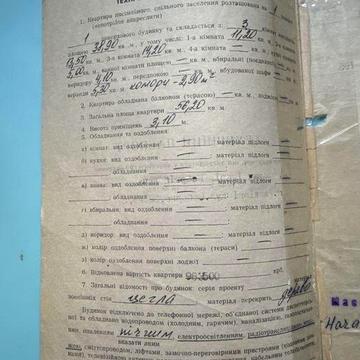 ТЕХН
1. Квартира посімейного, спільного заселення розташована на 1
(непотрібне викреслити)
1 поверхового будинку та складається з: 3 кімнат
площею 38,90 кв. м, у тому числі: 1-а кімната 11,20 кв. м, 2-а
13,50 кв. м, 3-я кімната 14,20 кв. м, 4-а кімната — кв. м
5,60 кв. м, ванної кімнати площею — кв. м, вбиральні (поєднаної)
коридору 4,10 кв. м, передпокою — кв. м, вбудованої шафи
веранди 5,30 кв. м, комори - 2,90 м²
2. Квартира обладнана балконом (терасою) — кв. м, лоджією
3. Загальна площа квартири 56,20 кв. м.
4. Висота приміщень 3,10 м.
5. Обладнання та оздоблення:
а) кімнат: вид оздоблення — матеріал підлоги —
б) кухня: вид оздоблення — матеріал підлоги —
обладнання —
в) ванна: вид оздоблення — матеріал підлоги
обладнання —
г) вбиральня: вид оздоблення — ; матеріал підлоги
обладнання —
д) коридор: вид оздоблення — матеріал підлоги —
ж) колір оздоблення поверхні балкона (тераси) —
з) колір оздоблення поверхні лоджії —
6. Відновна вартість квартири 963500 крб.
7. Загальні відомості про будинок: серія проекту
зовнішніх стін цегла матеріал перекрить дерево
Будинок підключено до телефонної мережі, об'єднаної системи
ні та обладнано водопроводом (холодним, гарячим), каналізацією,
опаленням пічним, електроосвітленням, радіотрансляцією
вказати яким
сміттєпроводом, ліфтами, замочно-переговорними пристроями
Нача